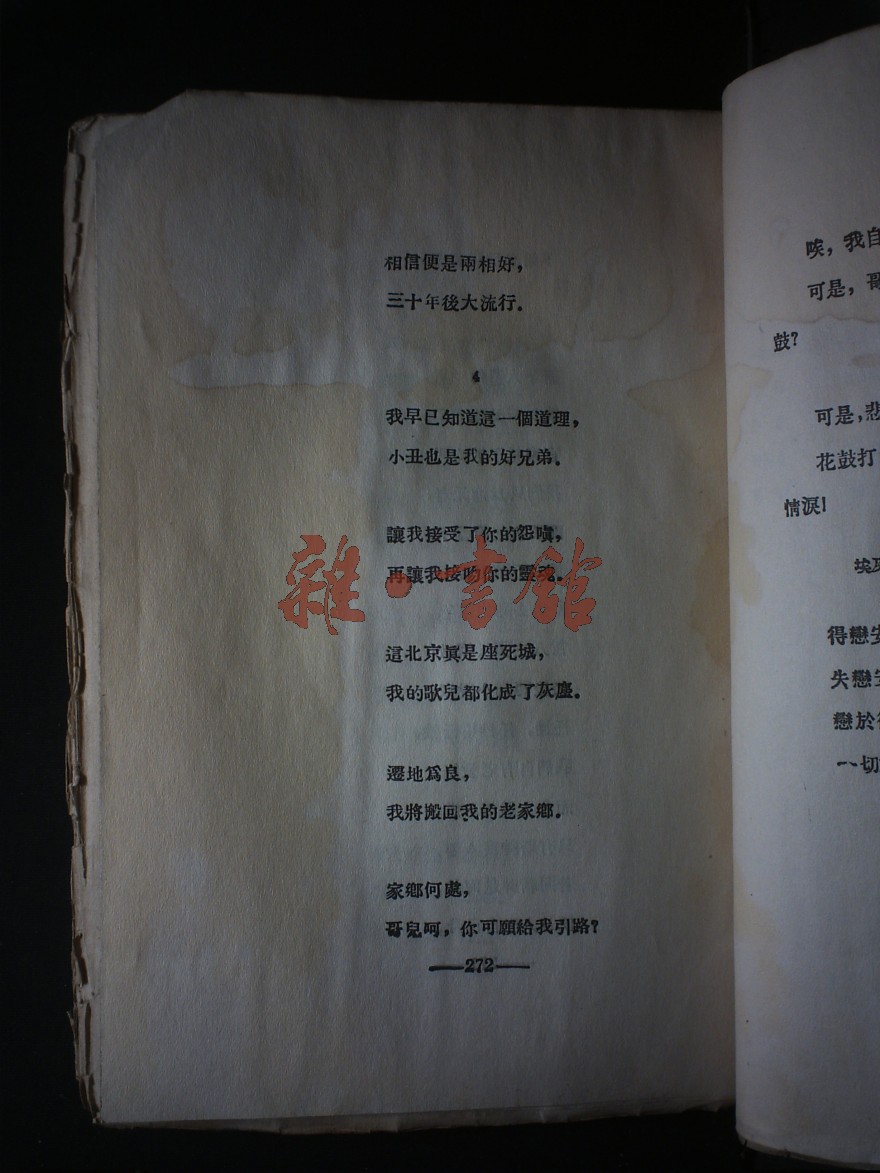 相信便是兩相好，
三十年後大流行．
4
我早已知道這一個道理，
小丑也是我的好兄弟．
讓我接受了你的怨嗔，
再讓我接吻你的靈魂．
這北京眞是座死城，
我的歌兒都化成了灰塵．
遷地爲良，
我將搬回我的老家鄉．
家鄉何處，
哥兒呵，你可願給我引路？
——272——
雜·書館
唉，我自
可是，哥
鼓？
可是，悲
花鼓打
情淚！
得戀安
失戀
戀於
一切